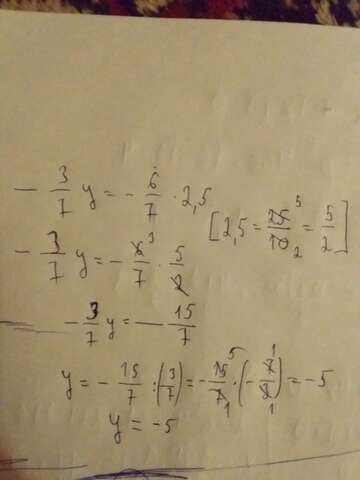 - 3/7 y = - 6/7 · 2,5 [2,5 = 25/10 5 2 = 5/2]
- 3/7 y = - 6/7 3 · 5/2
- 3/7 y = - 15/7
y = - 15/7 : (3/7) = - 15/7 5 1 · (- 7/3 1 1) = -5
y = -5